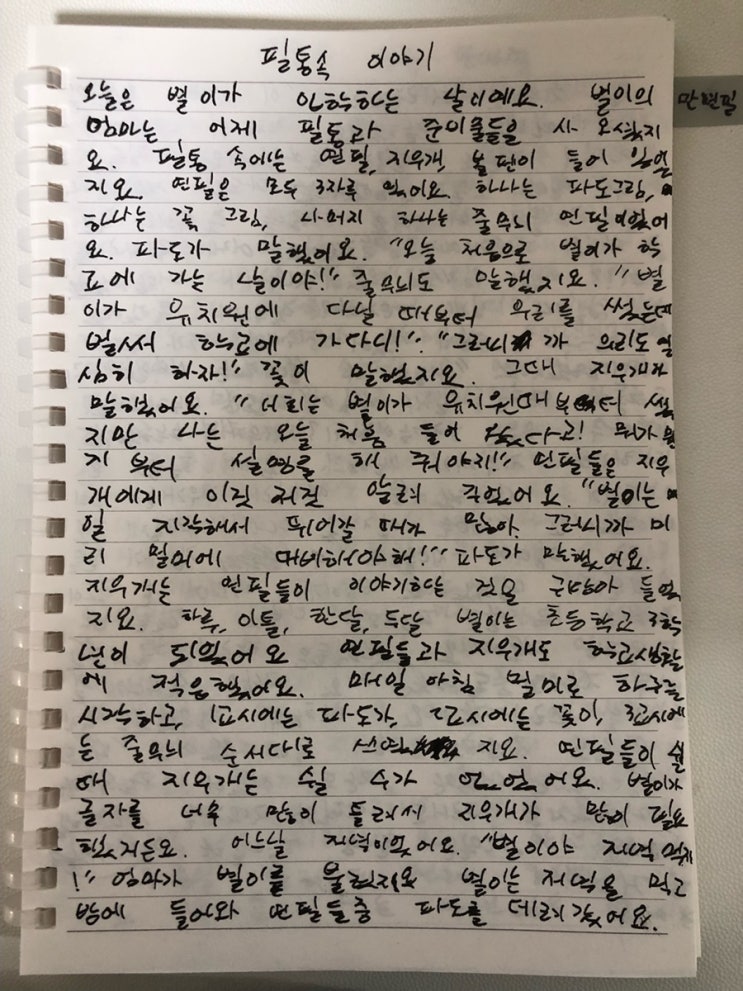 필통속 이야기
오늘은 별이가 입학하는 날이에요. 별이의
만년필
엄마는 어제 필통과 준비물들을 사 오셨지
요. 필통 속에는 연필, 지우개, 볼펜이 들어 있었
지요. 연필은 모두 3자루 있어요. 하나는 파도그림,
하나는 꽃 그림, 나머지 하나는 줄무늬 연필이었어
요. 파도가 말했어요. "오늘 처음으로 별이가 학
교에 가는 날이야!" 줄무늬도 말했지요. "별
이가 유치원에 다닐 때부터 우리를 썼는데
벌써 학교에 가다니!" "그러니까 우리도 열
심히 하자!" 꽃이 말했지요. 그때 지우개가
말했어요. "너희는 별이가 유치원때부터 썼
지만 나는 오늘 처음 들어 왔다고! 뭐가 뭔
지 부터 설명를 해 줘야지!" 연필들은 지우
개에게 이것 저것 알려 주었어요. "별이는
일 지각해서 뛰어갈 때가 많아. 그러니까 미
리 멀미에 대비해야해!" 파도가 말했어요.
지우개는 연필들이 이야기하는 것을 귀담아 들었
지요. 하루, 이틀, 한달, 두달 별이는 초등학교 3학
년이 되었어요 연필들과 지우개도 학교생활
에 적응했어요. 매일 아침 멀미로 하루를
시작하고, 1교시에는 파도가, 2교시에는 꽃이, 3교시에
는 줄무늬 순서대로 지요. 연필들이 쉴
때 지우개는 쉴 수가 없었어요. 별이가
글자를 너무 많이 틀려서 지우개가 많이 필요
했거든요. 어느날 저녁이었어요. "별이야 저녁 먹자
!" 엄마가 별이를 불렀지요 별이는 저녁을 먹고
방에 들어와 연필들중 파도를 데려갔어요.